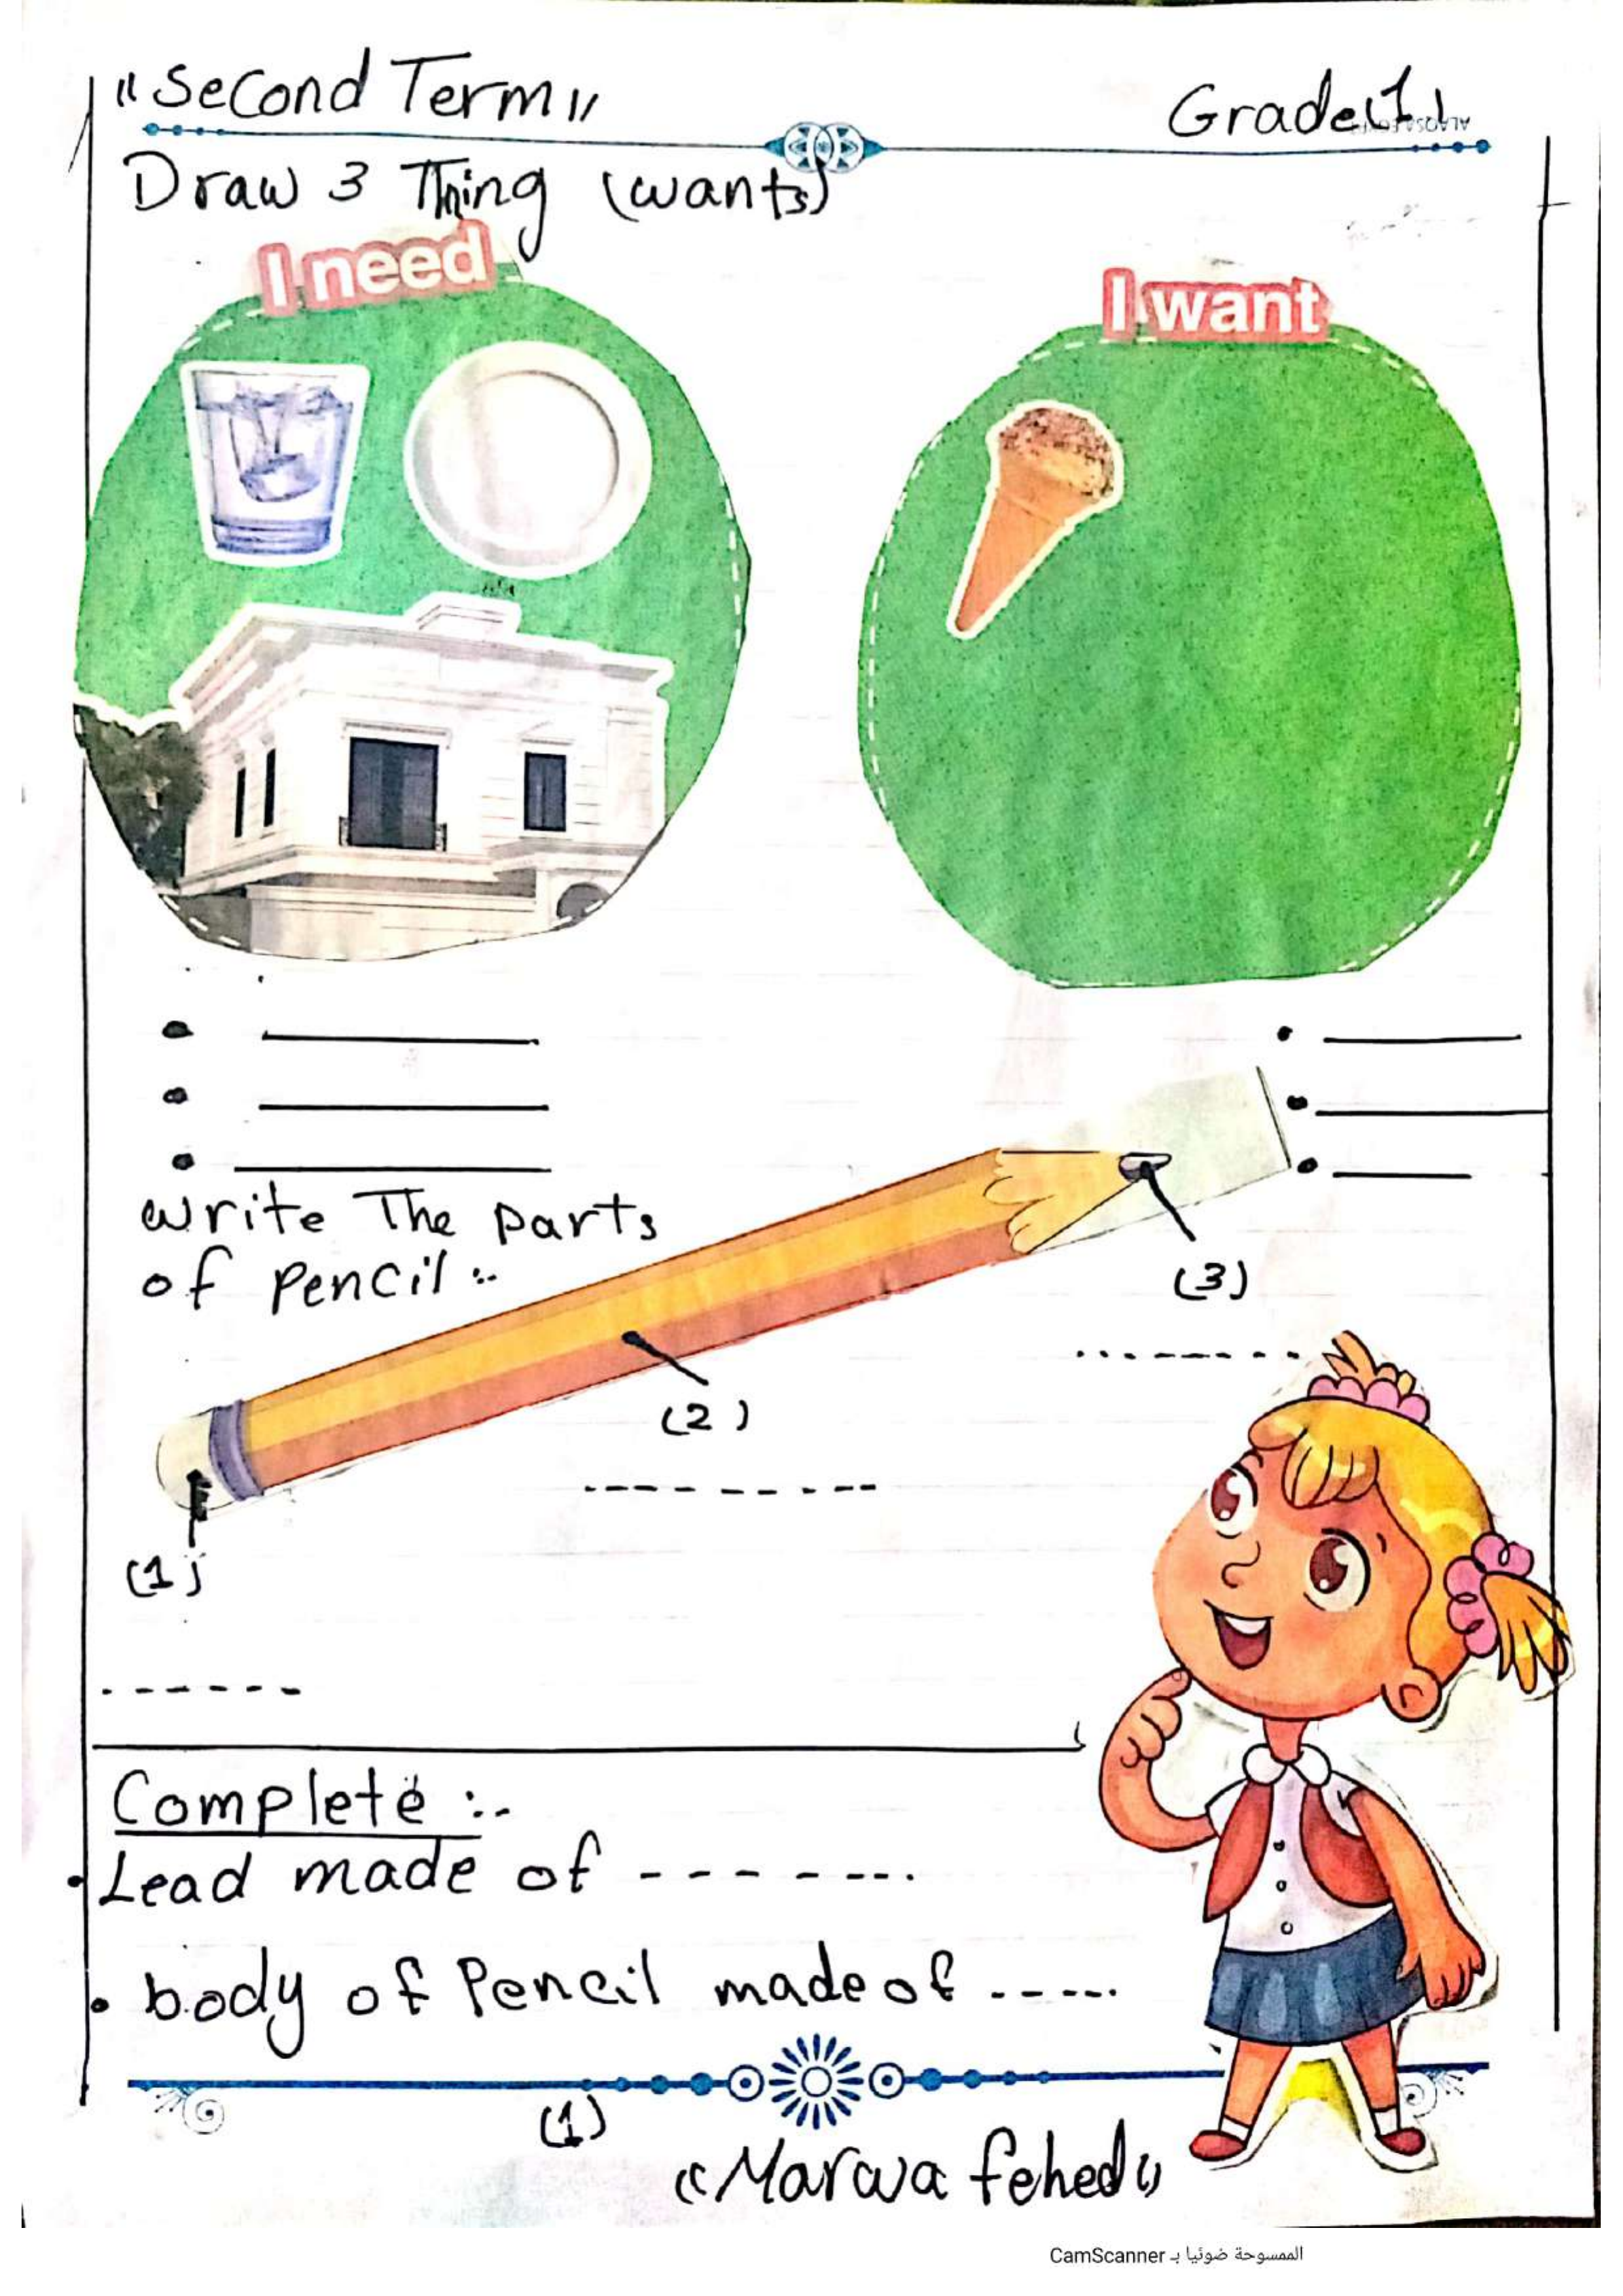 "Second Term"
Grade(1)
Draw 3 Thing (wants)
I need
I want
write The parts
of pencil :-
(3)
(2)
(1)
Complete :-
• Lead made of - - - - - - - -
• body of Pencil made of - - - - -
(1)
"Marwa fehed"
الممسوحة ضوئيا بـ CamScanner